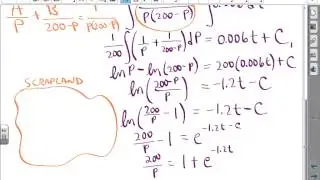 A/P + B/(200-P) = 1/(P(200-P))
P(200-P)
1/200 ∫(1/P + 1/(200-P))dP = 0.006t + C,
ln P - ln(200-P) = 200(0.006t) + C
SCRAPLAND
ln((200-P)/P) = -1.2t - C
ln(200/P - 1) = -1.2t - C
200/P - 1 = e^(-1.2t-C)
200/P = 1 + e^(-1.2t